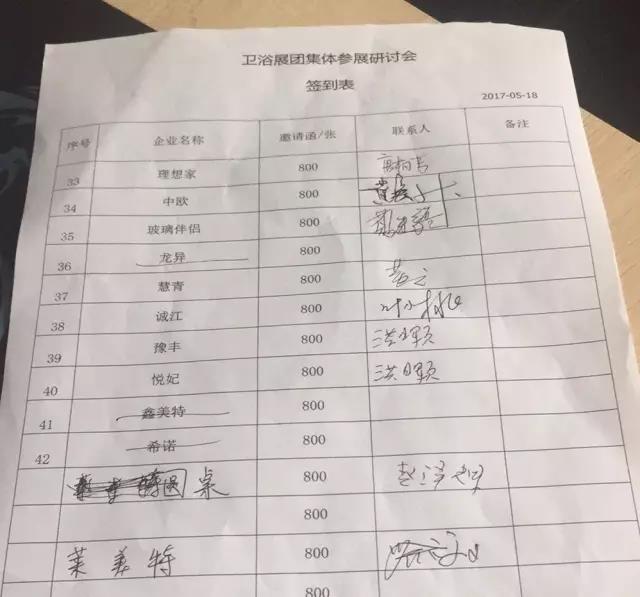 卫浴展团集体参展研讨会
签到表
2017-05-18
序号 企业名称 邀请函/张 联系人 备注
33 理想家 800
34 中欧 800
35 玻璃伴侣 800
36 龙异 800
37 慧青 800
38 诚江 800
39 豫丰 800 洪颖
40 悦妃 800 洪颖
41 鑫美特 800
42 希诺 800
桌 800
800
莱美特 800
800